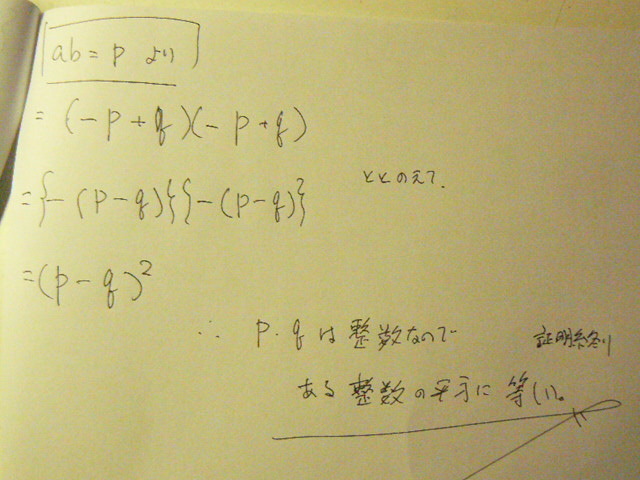 ab = p より
= (-p+q)(-p+q)
= {-(p-q)}{-(p-q)}
ととのえて.
= (p-q)²
∴ p.qは整数なので
証明終り
ある整数の平方に等しい。